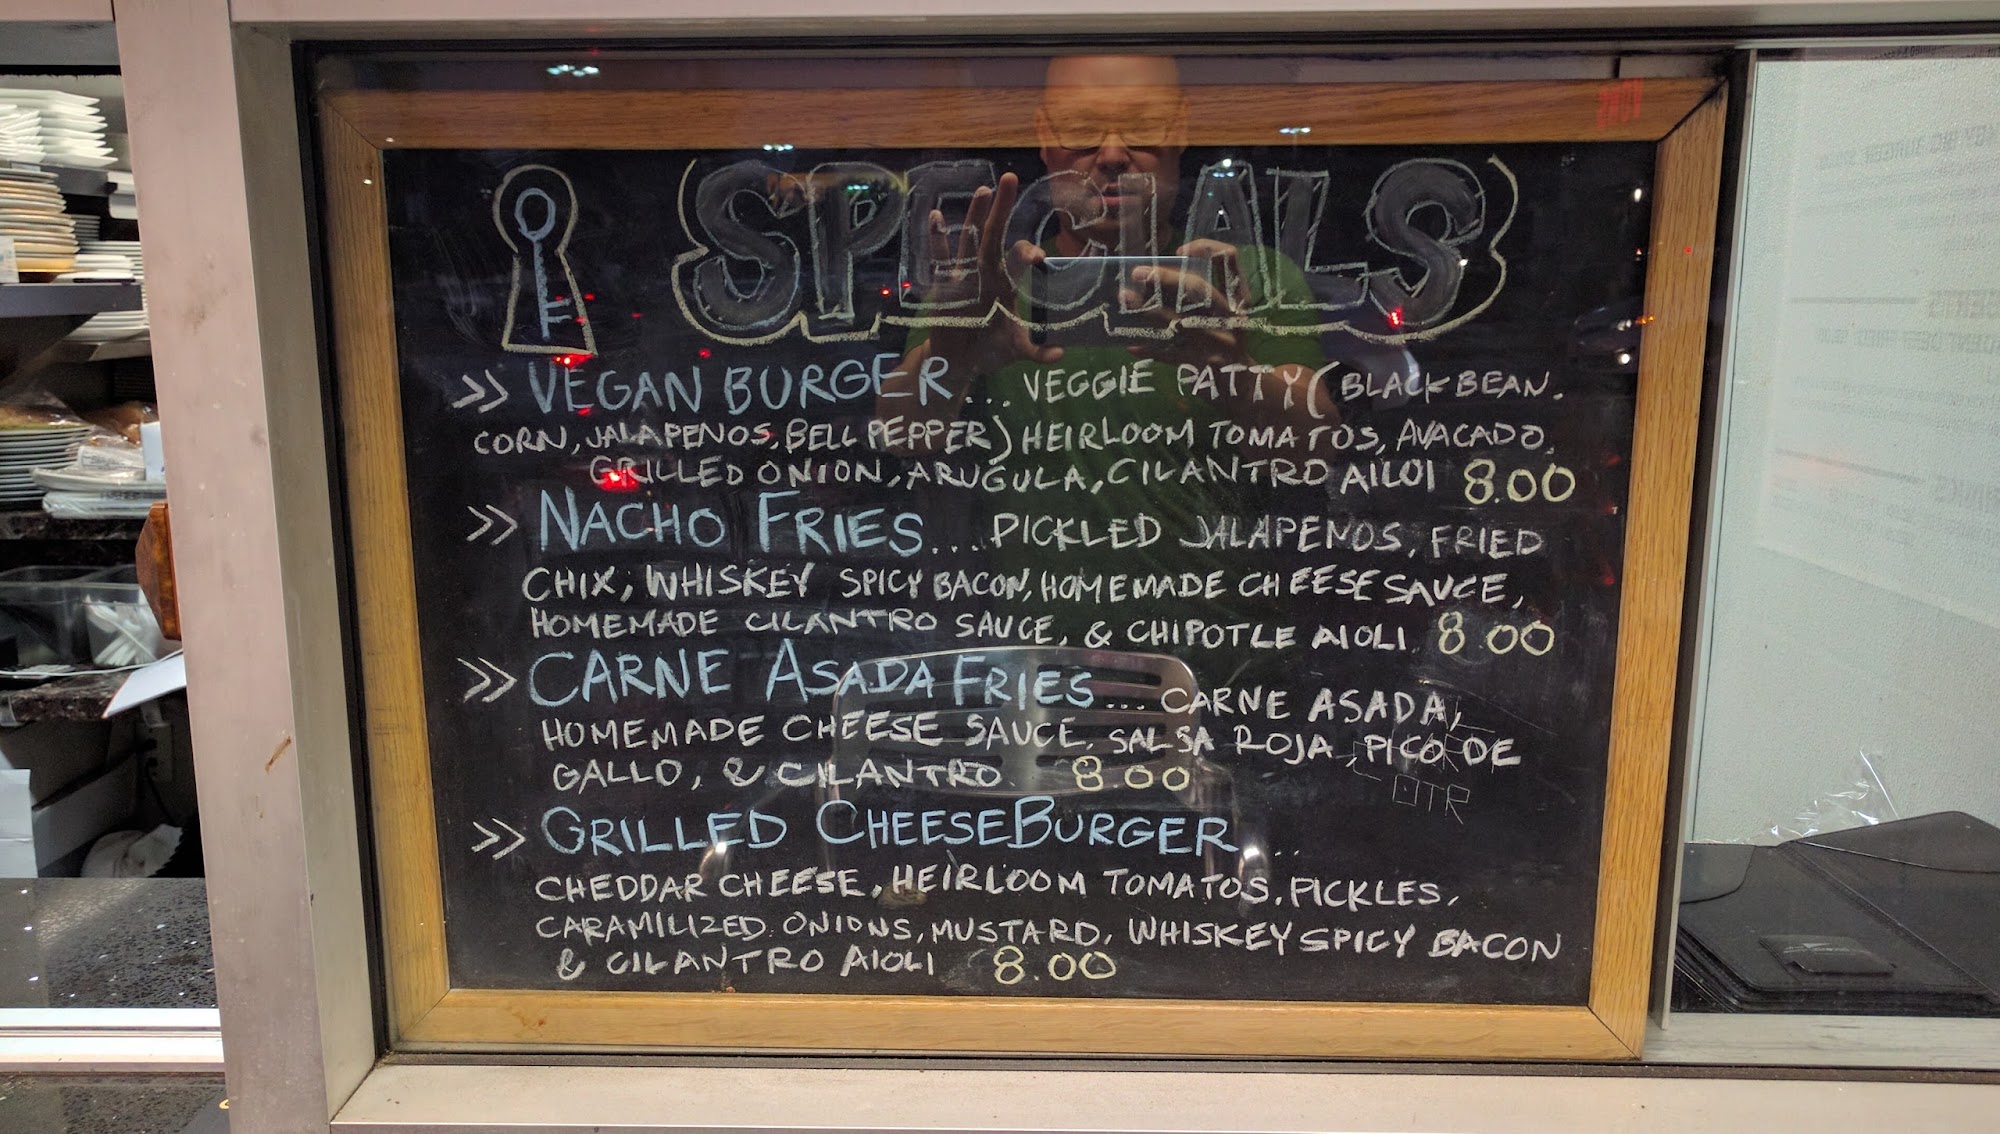 SPECIALS
>> VEGAN BURGER... VEGGIE PATTY (BLACK BEAN.
CORN, JALAPENOS, BELL PEPPER) HEIRLOOM TOMATOS, AVACADO,
GRILLED ONION, ARUGULA, CILANTRO AILOI 8.00
>> NACHO FRIES... PICKLED JALAPENOS, FRIED
CHIX, WHISKEY SPICY BACON, HOMEMADE CHEESE SAUCE,
HOMEMADE CILANTRO SAUCE, & CHIPOTLE AIOLI. 8.00
>> CARNE ASADA FRIES... CARNE ASADA,
HOMEMADE CHEESE SAUCE, SALSA ROJA, PICO DE
GALLO, & CILANTRO. 8.00
>> GRILLED CHEESEBURGER...
CHEDDAR CHEESE, HEIRLOOM TOMATOS, PICKLES,
CARAMILIZED ONIONS, MUSTARD, WHISKEY SPICY BACON
& CILANTRO AIOLI 8.00